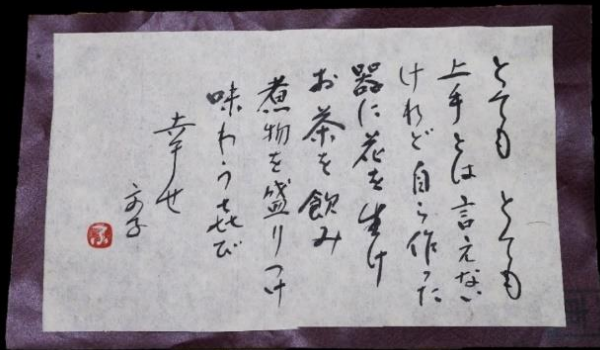 とても とても
上手とは言えない
けれど自ら作った
器に花を生け
お茶を飲み
煮物を盛りつけ
味わう喜び
幸せ